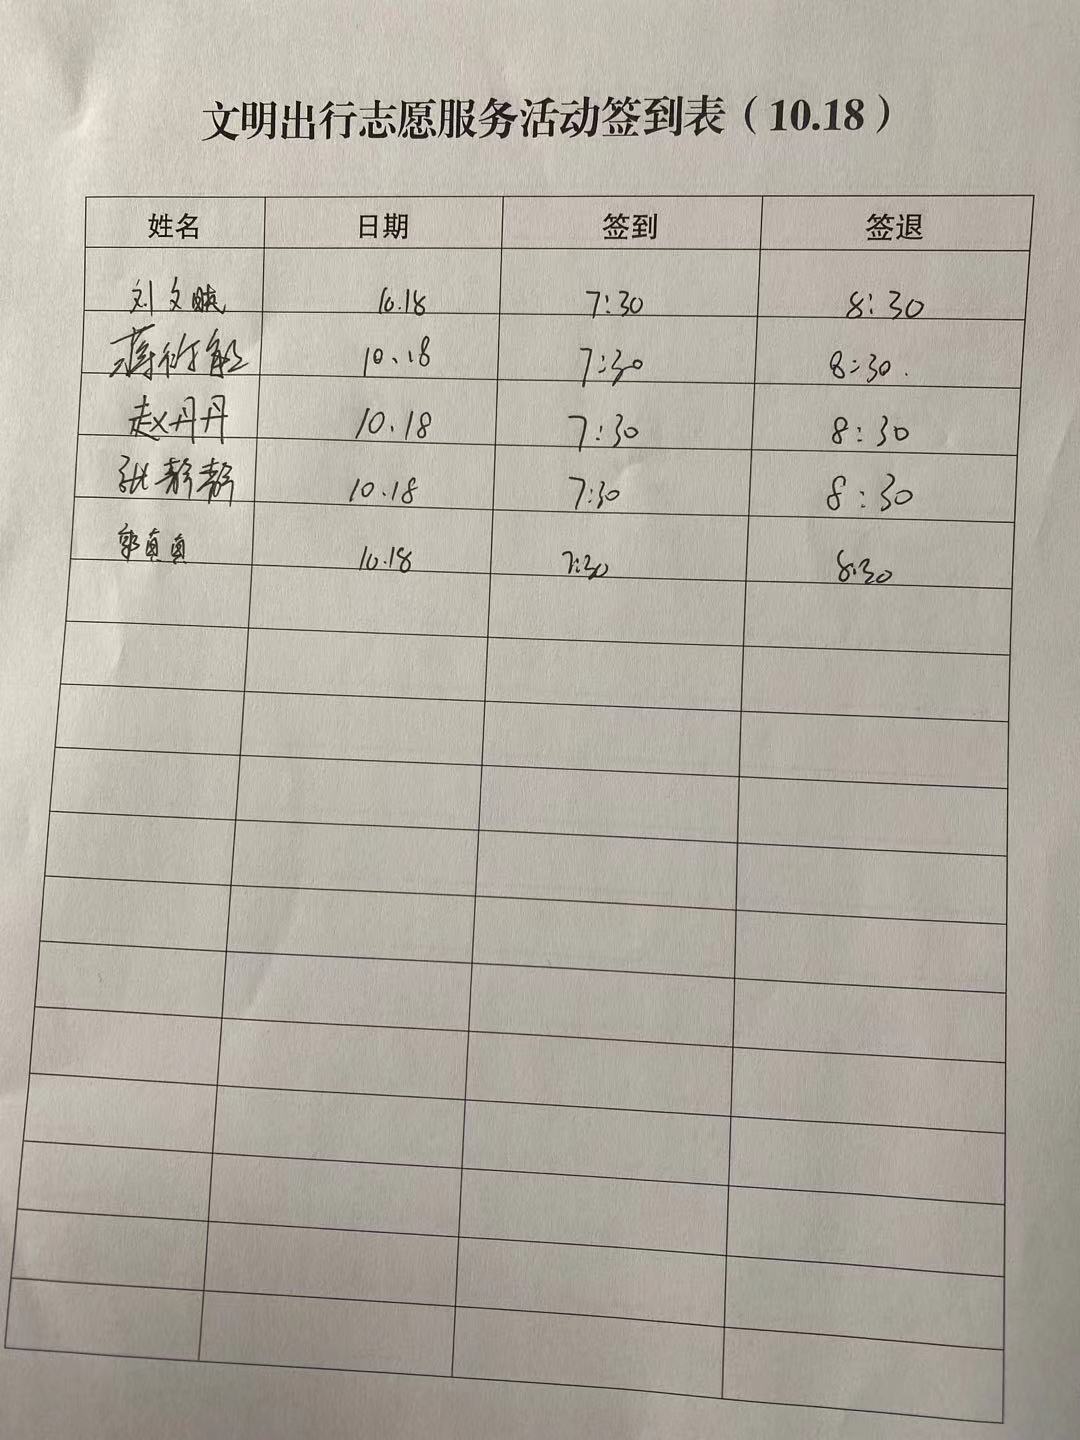 文明出行志愿服务活动签到表（10.18）
姓名 日期 签到 签退
刘文 10.18 7:30 8:30
蒋 10.18 7:30 8:30.
赵丹丹 10.18 7:30 8:30
张静静 10.18 7:30 8:30
郭真真 10.18 7:30 8:30